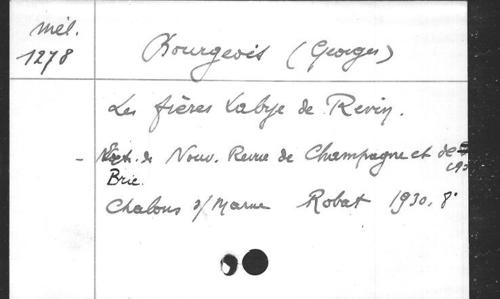 Mél.
1278
Bourgeois (Georges)
Les frères Labye de Revin.
- Extr. de Nouv. Revue de Champagne et de
Brie.
Chalons s/ Marne Robat 1930. 8°